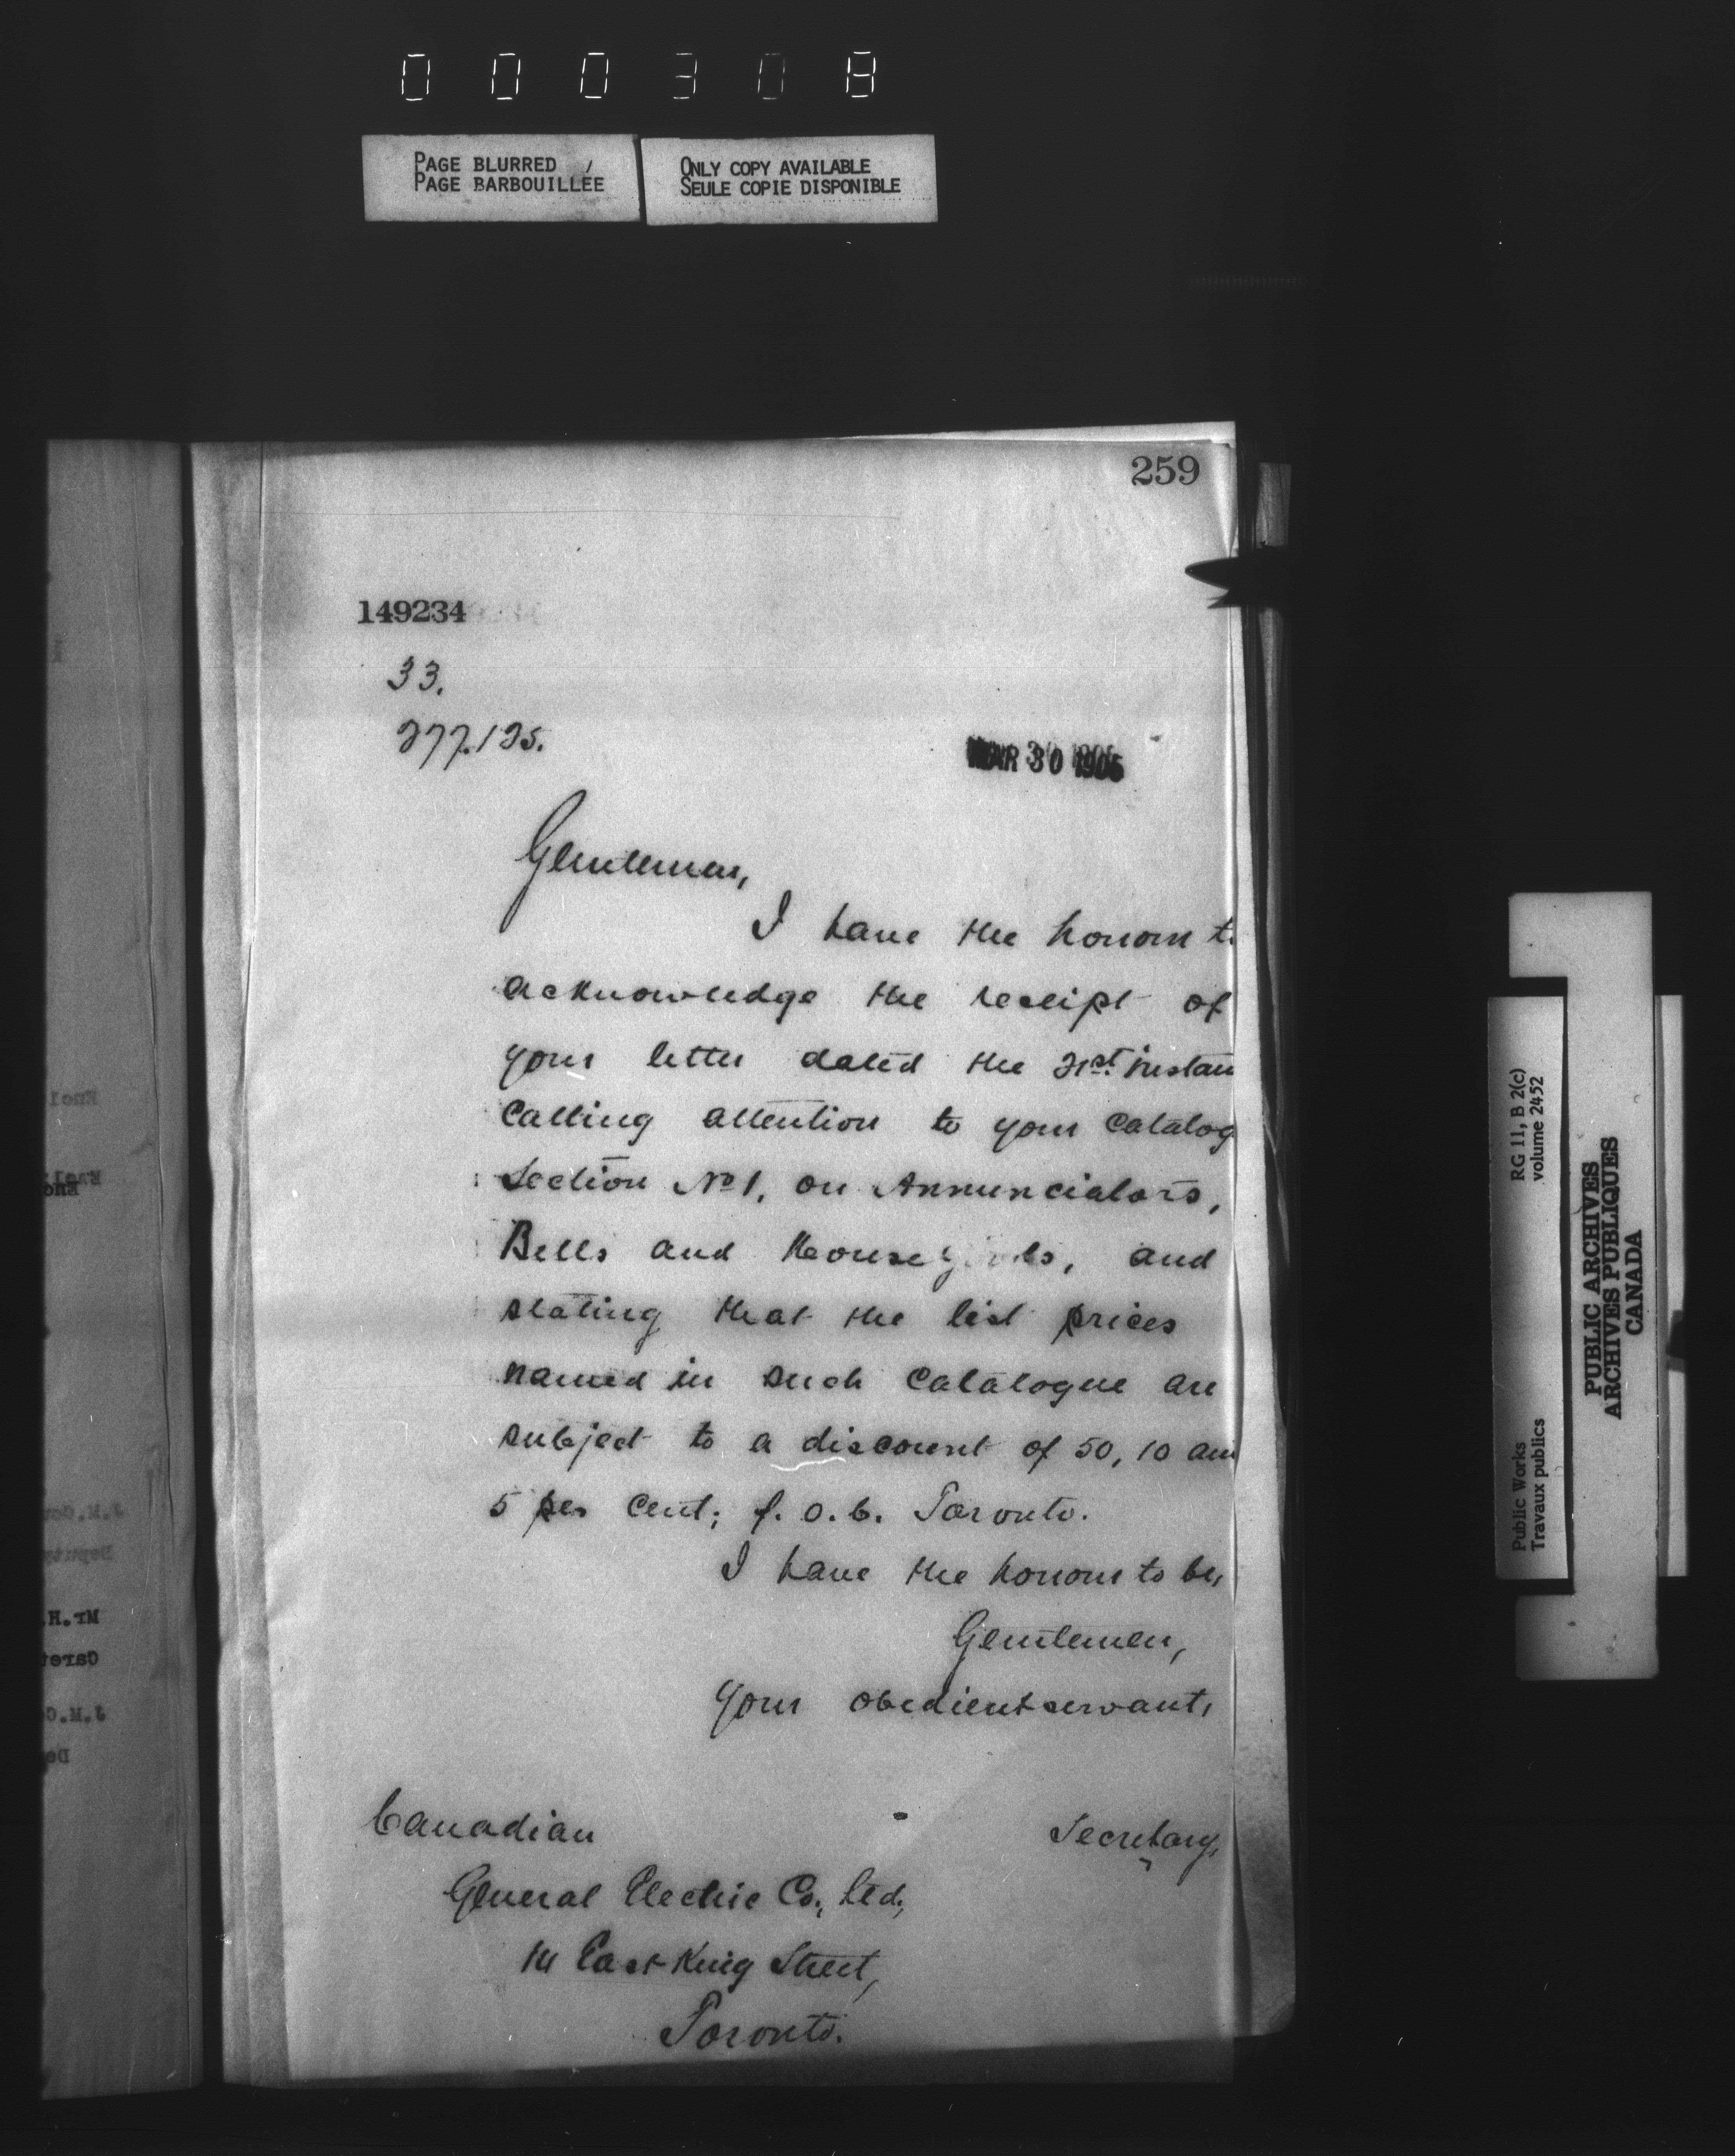 000308
PAGE BLURRED
PAGE BARBOUILLÉE
ONLY COPY AVAILABLE
SEULE COPIE DISPONIBLE
259
149234
33.
277.125.
MAR 30 1905
Gentlemen,
I have the honour to
acknowledge the receipt of
your letter dated the 21st. instan
calling attention to your catalog
Section No 1, on Annunciators,
Bells and House goods, and
stating that the list prices
named in such catalogue are
subject to a discount of 50, 10 and
5 per cent; f. o. b. Toronto.
I have the honour to be,
Gentlemen,
your obedient servant,
Secretary,
Canadian
General Electric Co., Ltd.,
14 East King Street,
Toronto.
RG 11, B 2(c)
volume 2452
Public Works
Travaux publics
PUBLIC ARCHIVES
ARCHIVES PUBLIQUES
CANADA